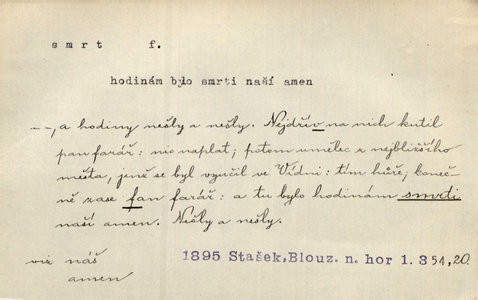 smrt f.
hodinám bylo smrti naší amen
--, a hodiny nešly a nešly. Nejdřív na nich kutil
pan farář: nic naplat; potom umělec z nejbližšího
města, jenž se byl vyučil ve Vídni: tím hůře; koneč-
ně zase pan farář: a tu bylo hodinám smrti
naší amen. Nešly a nešly.
viz náš
amen
1895 Stašek, Blouz. n. hor 1. 354, 20.